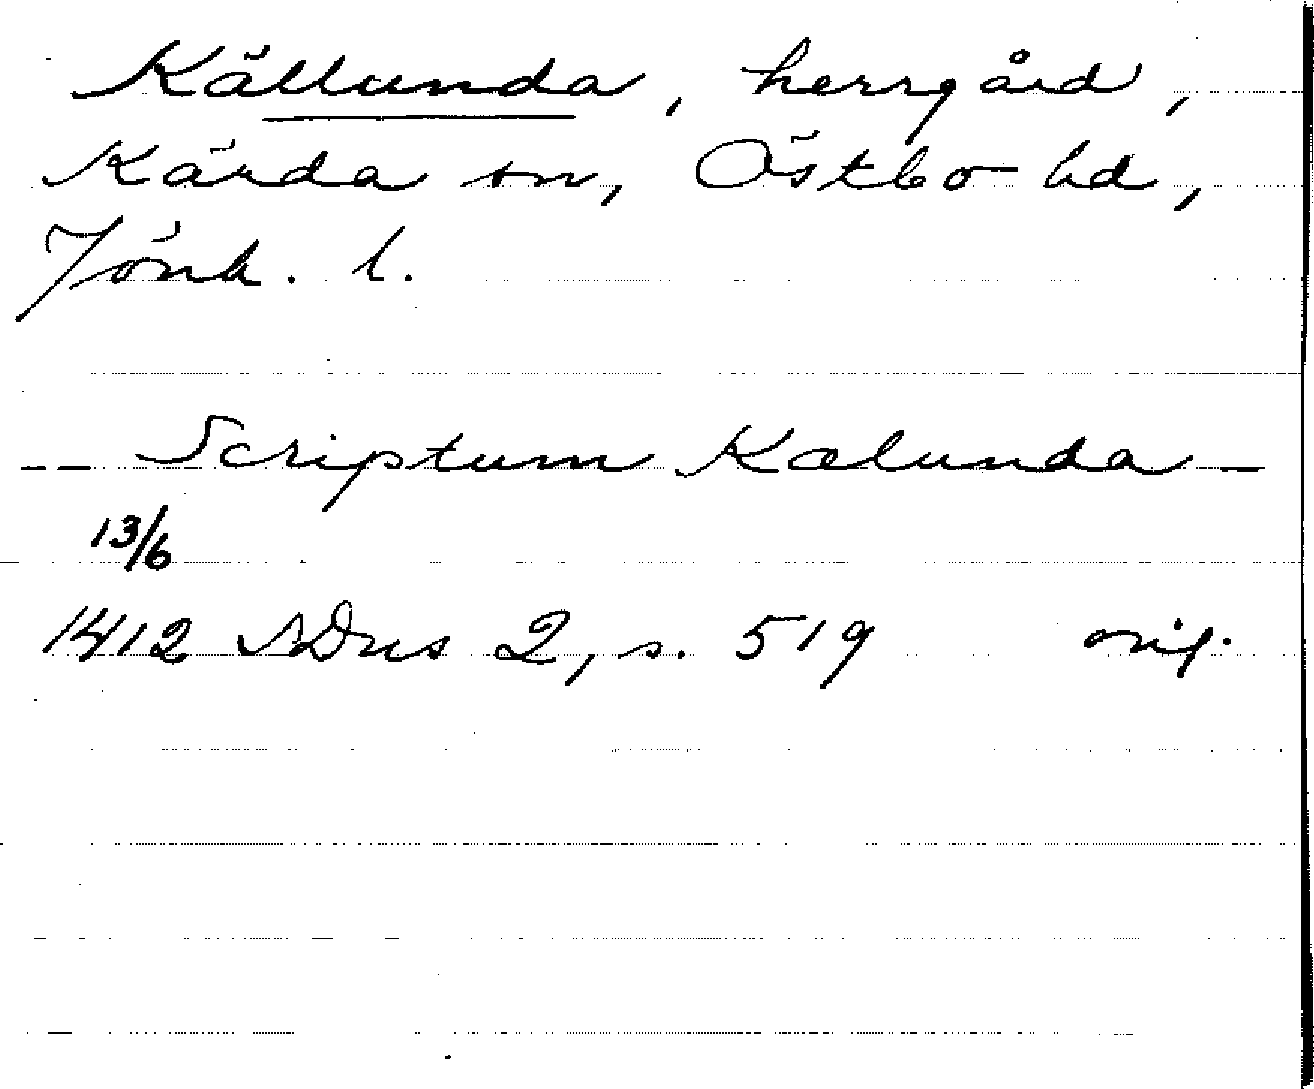 Källunda, herrgård,
Kärda sn, Östbo hd,
Jönk. l.
-- Scriptum Kælunda -
13/6
1412 SDns 2, s. 519 orig.